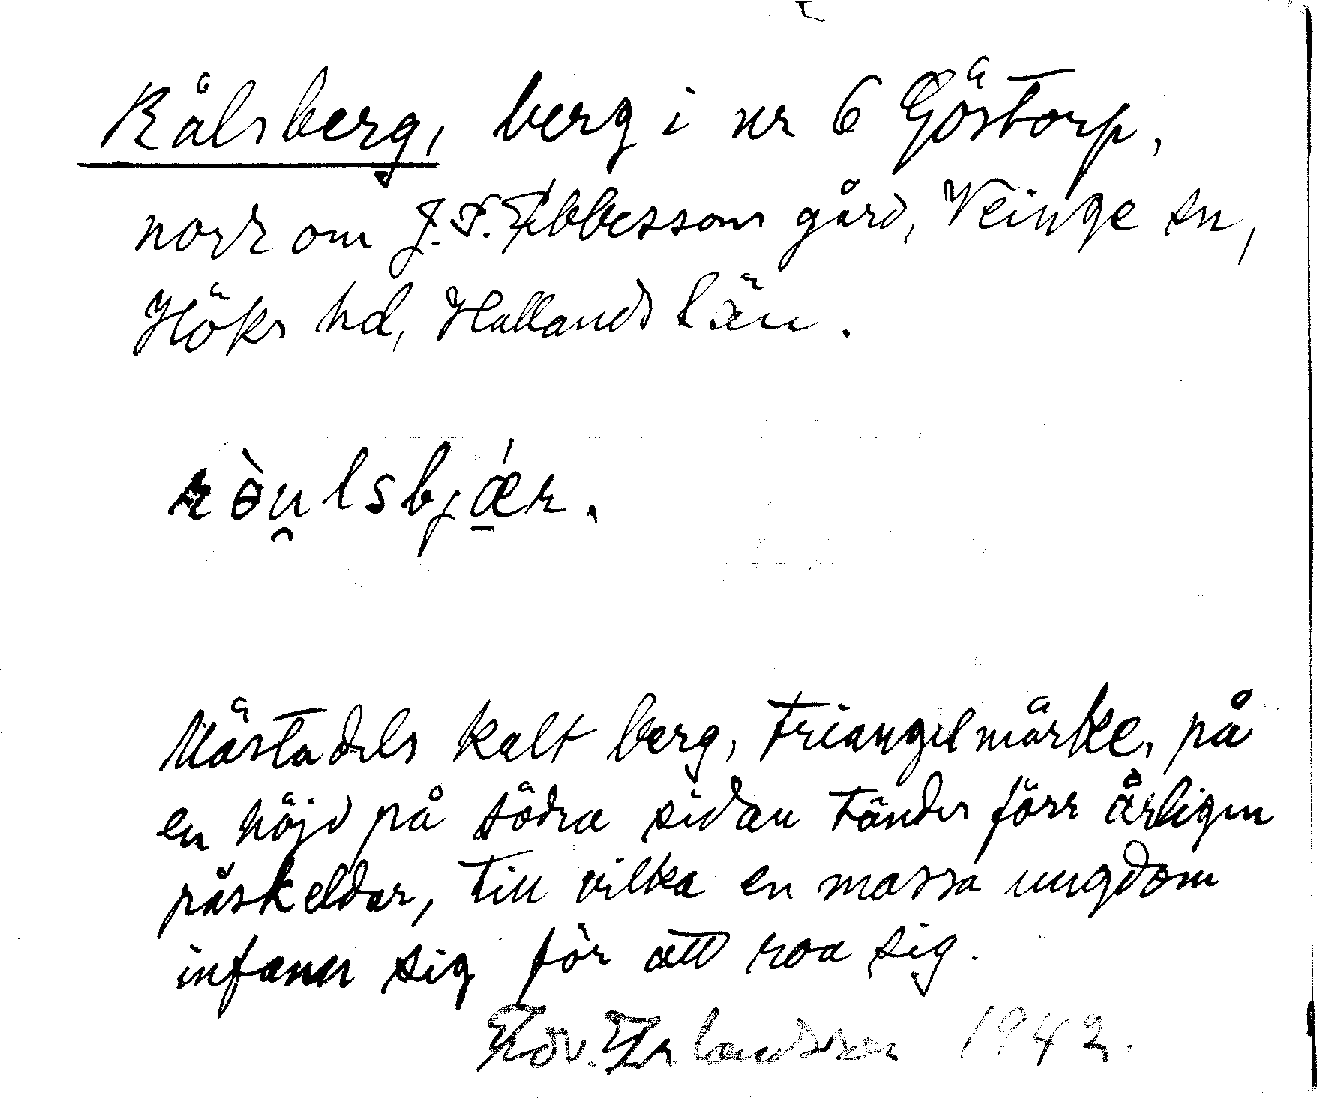 Rålsberg, berg i nr 6 Göstorp,
norr om J. F. Ebbessons gård, Veinge sn,
Höks hd, Hallands län.
rò̤u̯lsbjǽr.
Mästadels kalt berg, triangelmärke, på
en höjd på södra sidan tändes förr årligen
påskeldar, till vilka en massa ungdom
infann sig för att roa sig.
Edv. Erlandsson 1942.